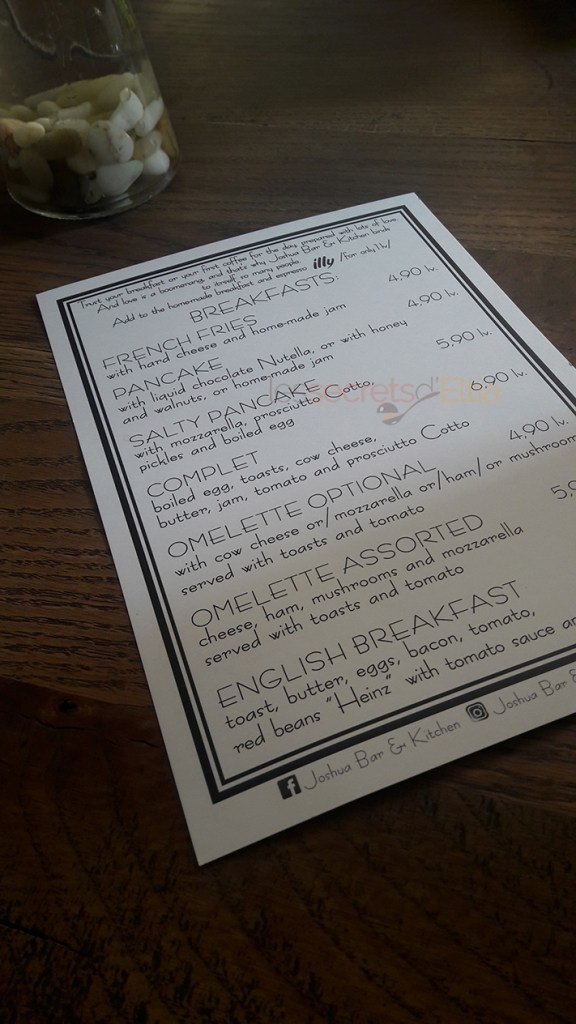 Trust your breakfast or your first coffee for the day, prepared with lots of love
And love is a boomerang, and that's why Joshua Bar & Kitchen binds
to itself so many people.
Add to the homemade breakfast and espresso illy /for only 1 lv/
BREAKFASTS:
FRENCH FRIES 4,90 lv.
with hard cheese and home-made jam
PANCAKE 4,90 lv.
with liquid chocolate Nutella, or with honey
and walnuts, or home-made jam
SALTY PANCAKE 5,90 lv.
with mozzarella, prosciutto Cotto,
pickles and boiled egg
COMPLET 6,90 lv.
boiled egg, toasts, cow cheese,
butter, jam, tomato and prosciutto Cotto
OMELETTE OPTIONAL 4,90 lv.
with cow cheese or/mozzarella or/ham/or mushroom
served with toasts and tomato
OMELETTE ASSORTED 5,9
cheese, ham, mushrooms and mozzarella
served with toasts and tomato
ENGLISH BREAKFAST
toast, butter, eggs, bacon, tomato,
red beans "Heinz" with tomato sauce an
f Joshua Bar & Kitchen Joshua Bar &
les secrets d'Ellia